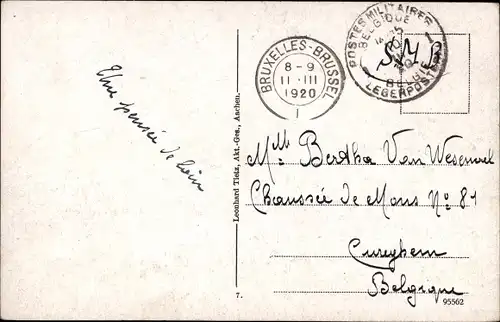 Une pensée de loin
Leonhard Tietz, Akt.-Ges., Aachen.
7.
BRUXELLES-BRUSSEL
8-9
11 III
1920
1
POSTES MILITAIRES
BELGIQUE
BELGIE
LEGERPOSTERIJ
S.M.B
Mlle Bertha Van Wesenwel
Chaussée de Mons No 81
Cureghem
Belgique
95502